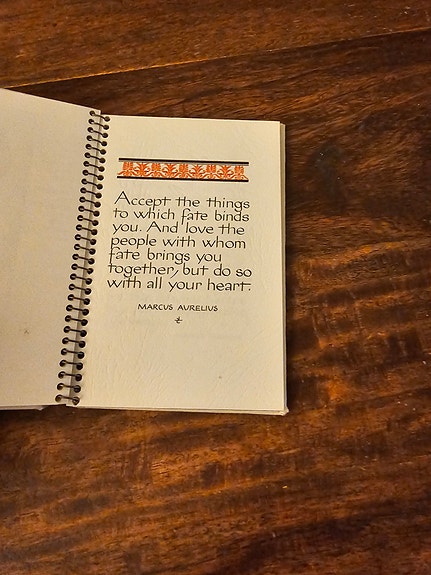 Accept the things
to which fate binds
you. And love the
people with whom
fate brings you
together, but do so
with all your heart.
MARCUS AURELIUS